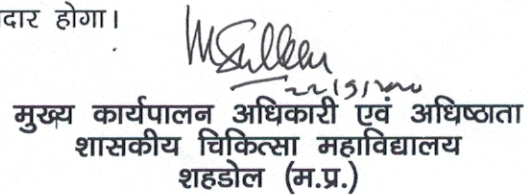 दार होगा।
22/9/2020
मुख्य कार्यपालन अधिकारी एवं अधिष्ठाता
शासकीय चिकित्सा महाविद्यालय
शहडोल (म.प्र.)